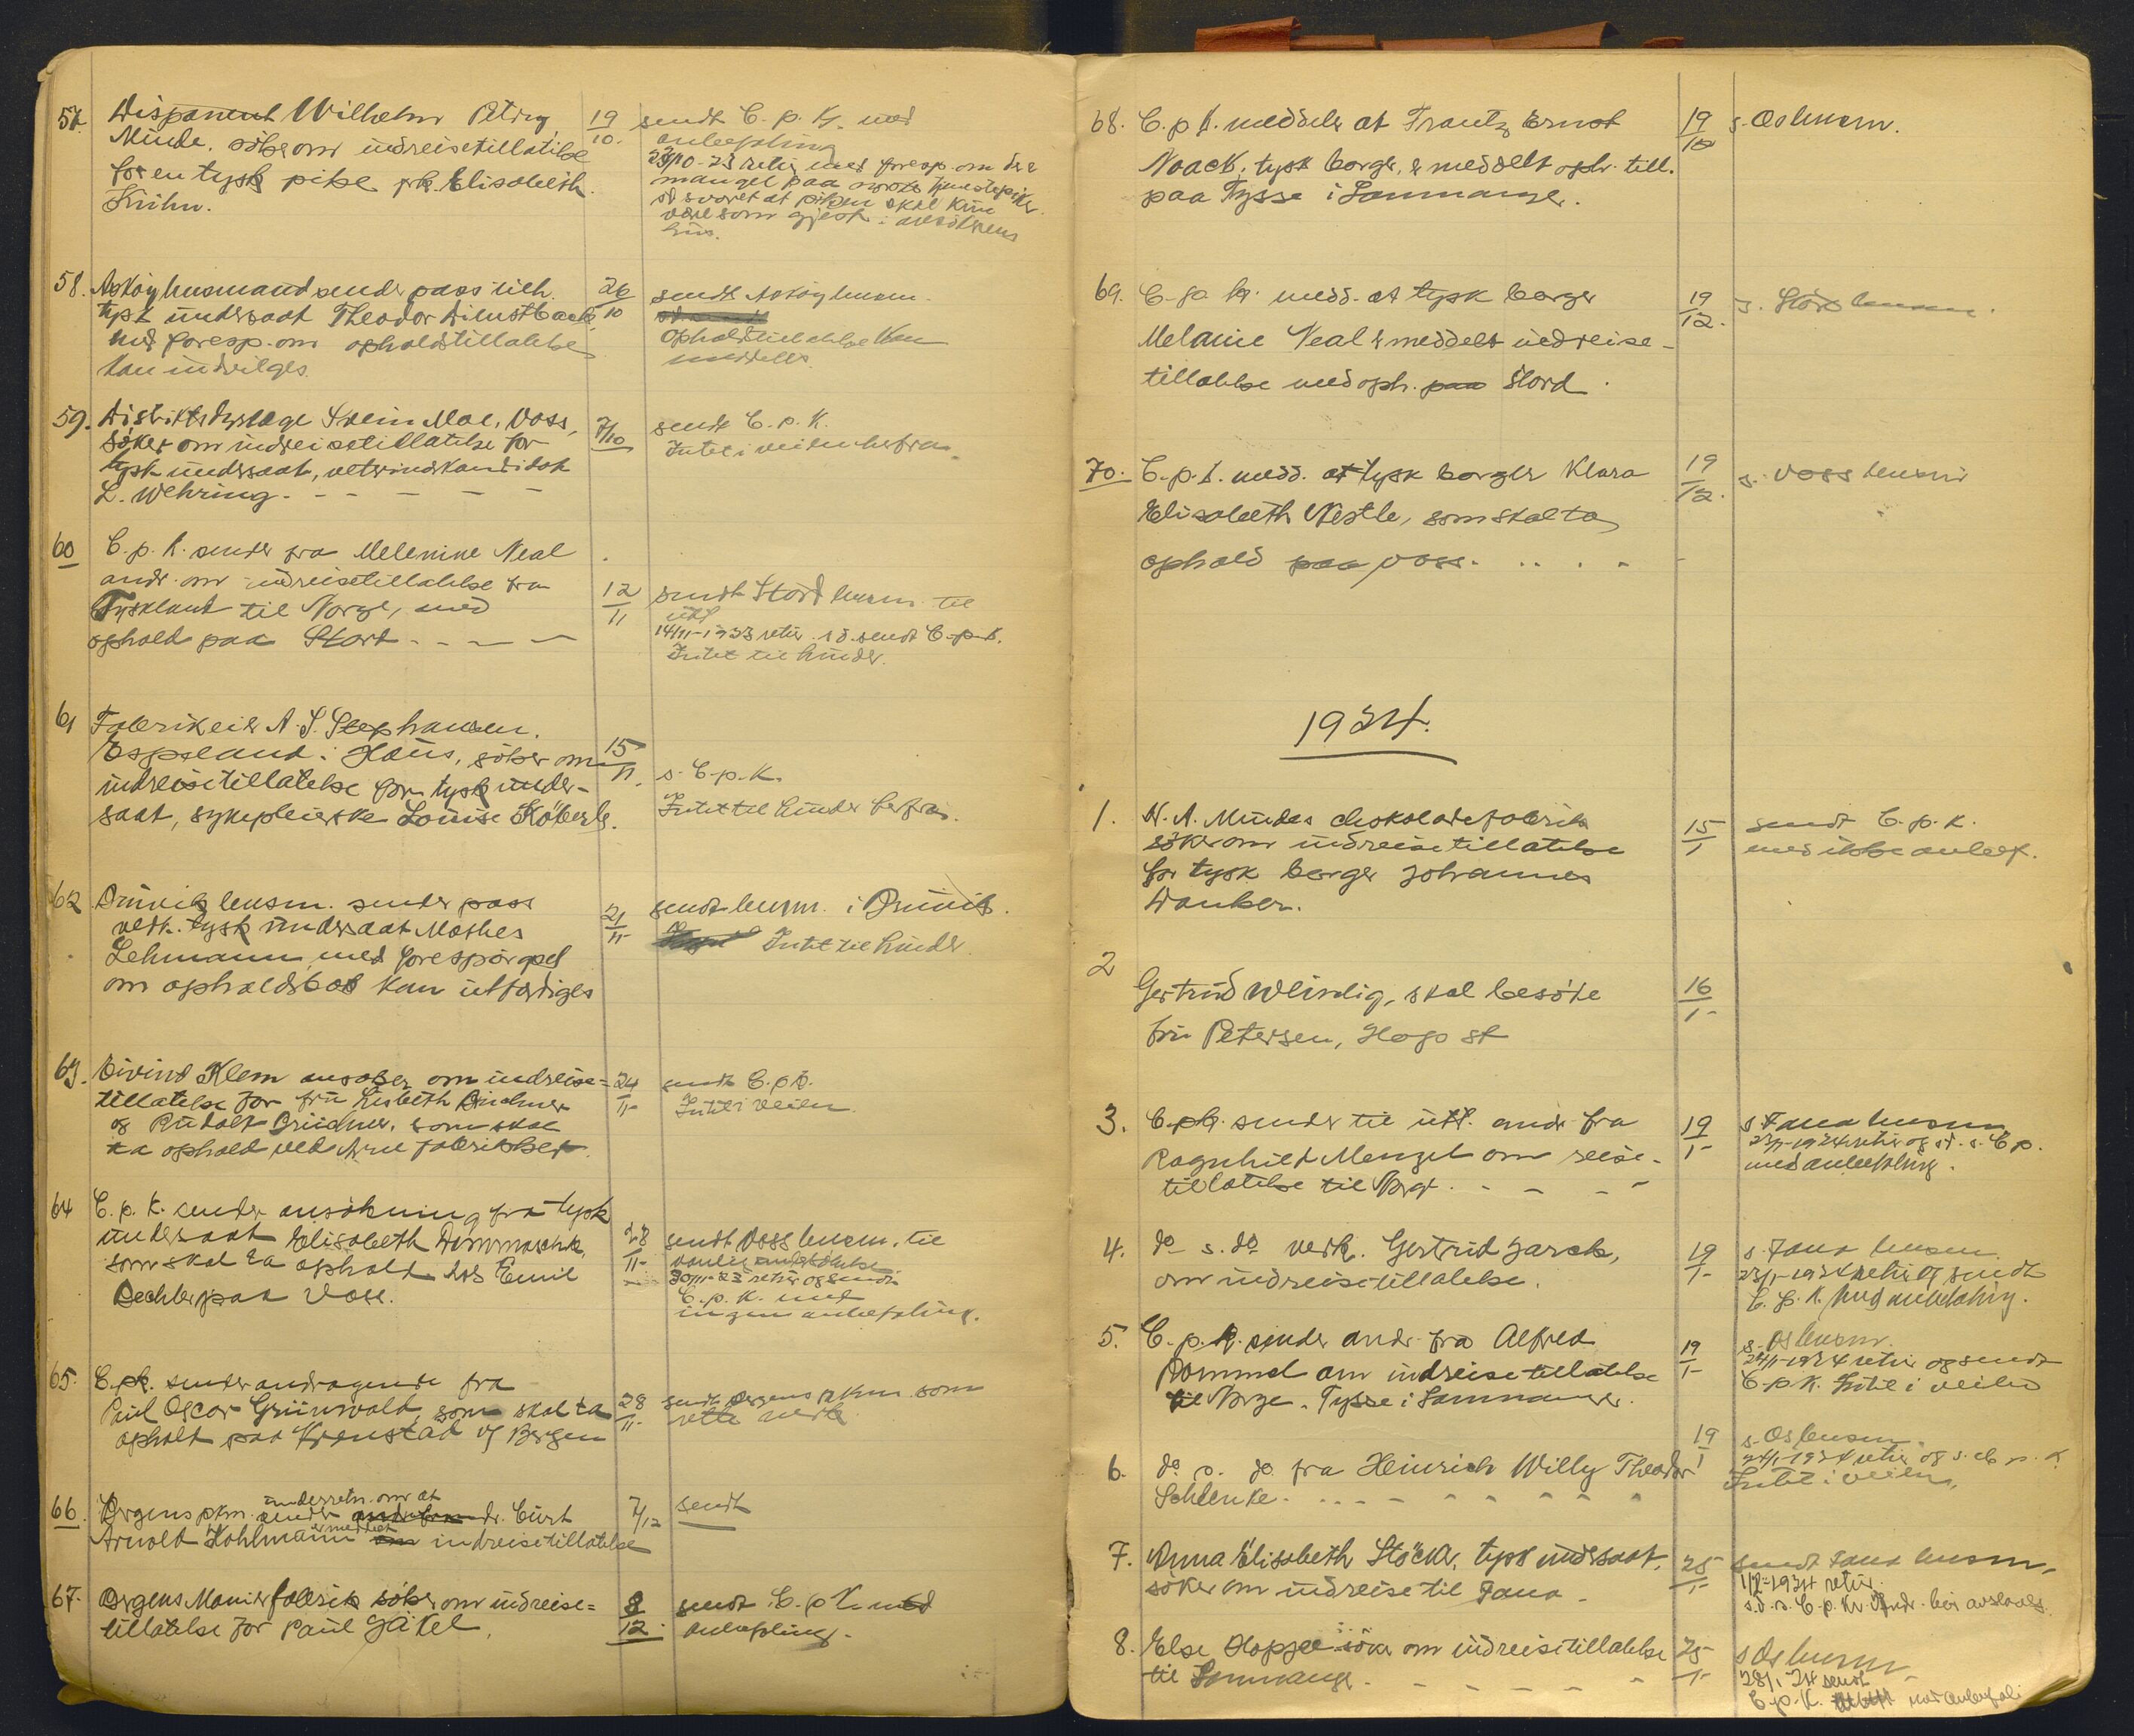 57. Disponent Wilhelm Petry,
Minde, söker om indreisetillatelse
for en tysk pike frk. Elisabeth
Kuhn.
19/10.
sendt C. p. K. med
anbefaling
retur med foresp. om der e
mangel paa
svaret at piken skal kun
være som gjest i ansökerens
hus.
58. Asköy lensmand sender pass tilh.
tysk undersaat Theodor Dienstback
med foresp. om opholdstillatelse
kan indvilges.
26/10
sendt Asköy lensm.
Opholdstillatelse kan
meddeles.
59. Distriktsdyrlæge Svein Moe, Voss,
söker om indreisetillatelse for
tysk undersaat, veterinærkandidat
L. Wehring. - - - - -
7/10
sendt C. p. K.
Intet i veien herfra.
60 C. p. K. sender fra Melenine Neal
andr. om indreisetillatelse fra
Tyskland til Norge, med
ophold paa Stord - - - -
12/11
sendt Stord lensm. til
utt.
14/11-1933 retur. s.d. sendt C. p. K.
Intet til hinder.
61 Fabrikeier A. S. Stephansen.
Espeland i Haus, söker om
indreisetillatelse for tysk under-
saat, sykepleierske Louise Köberle.
15/11.
s. C. p. K.
Intet til hinder herfra.
62 Bruvik lensm. sender pass
vedk. tysk undersaat Mathes
Lehmann med forespörsel
om opholdsbok kan utferdiges
21/11
sendt lensm. i Bruvik.
Intet til hinder
63. Eivind Klem ansöker om indreise=
tillatelse for fru Lisbeth Brückner
og Rudolf Brückner, som skal
ta ophold ved Arne fabrikker.
24/11
sendt C. p. K.
Intet i veien
64 C. p. K. sender ansökning fra tysk
undersaat Elisabeth Dommaschk,
som skal ta ophold hos Emil
Dechler paa Voss.
28/11
sendt Voss lensm. til
vanlig
30/11-23 retur og sendt
C. p. K. med
ingen anbefaling.
65. C. p. K. sender andragende fra
Paul Oscar Grünwald, som skal ta
ophold paa Kronstad v/ Bergen
28/11
sendt Bergens pkm. som
rette vedk.
66. Bergens pkm. sender underretn. om at dr. Curt
Arnold Kohlmann er meddelt indreisetillatelse
7/12
sendt
67. Bergens Manufabrik söker om indreise=
tillatelse for Paul Jäkel.
8/12.
sendt C. p. K. med
anbefaling.
68. C. p. K. meddeler at Frantz Ernst
Noack, tysk borger, er meddelt oph. till.
paa Tysse i Samnanger.
19/10
s. Os lensm.
69. C. p. K. medd. at tysk borger
Melanie Neal er meddelt indreise-
tillatelse med oph. paa Stord.
19/12.
s. Stord lensm.
70. C. p. K. medd. at tysk borger Klara
Elisabeth Nestle, som skal ta
ophold paa Voss. . . . - -
19/12.
s. Voss lensm
1934.
1. N. A. Mindes chokoladefabrik
söker om indreisetillatelse
for tysk borger Johannes
Danker.
15/1
sendt C. p. K.
med ikke anbef.
2
Gertrud Weindig, skal besöke
fru Petersen, Hop st
16/1-
3. C. p. K. sender til utt. andr. fra
Ragnhild Menzel om reise-
tillatelse til Norge. - - - -
19/1-
s. Fana lensm
23/1-1934 retur og sd. s. C. p.
med anbefaling.
4. do s. do vedk. Gertrud Jarck,
om indreisetillatelse.
19/1-
s. Fana lensm.
23/1-1934 retur og sendt
C. p. K. med anbefaling.
5. C. p. K. sender andr. fra Alfred
Pommel om indreisetillatelse
til Norge. Tysse i Samnanger.
19/1-
s. Os lensm.
24/1-1934 retur og sendt
C. p. K. Intet i veien
6. do s. do fra Heinrich Willy Theodor
Schlenke. . . . - - - - - -
19/1
s. Os lensm.
24/1-1934 retur og s. C. p. K
Intet i veien.
7. Anna Elisabeth Stöckl, tysk undersaat,
söker om indreise til Fana.
25/1-
sendt Fana lensm.
1/2-1934 retur.
s.d. s. C. p. K. Andr. bör avslaaes.
8. Else Hopfe söker om indreisetillatelse
til Samnanger. - - - - - -
25/1-
s Os lensm
28/1 34 sendt
C. p. K. med anbefali